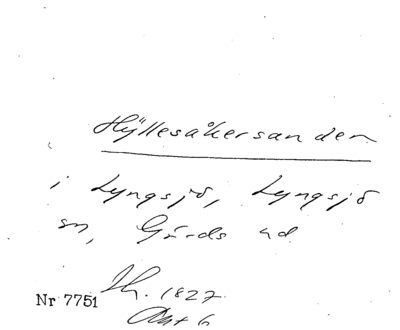 Hyllesåkersanden
i Lyngsjö, Lyngsjö
sn, Gärds hd
Th. 1827
Nr 7751
Akt 6